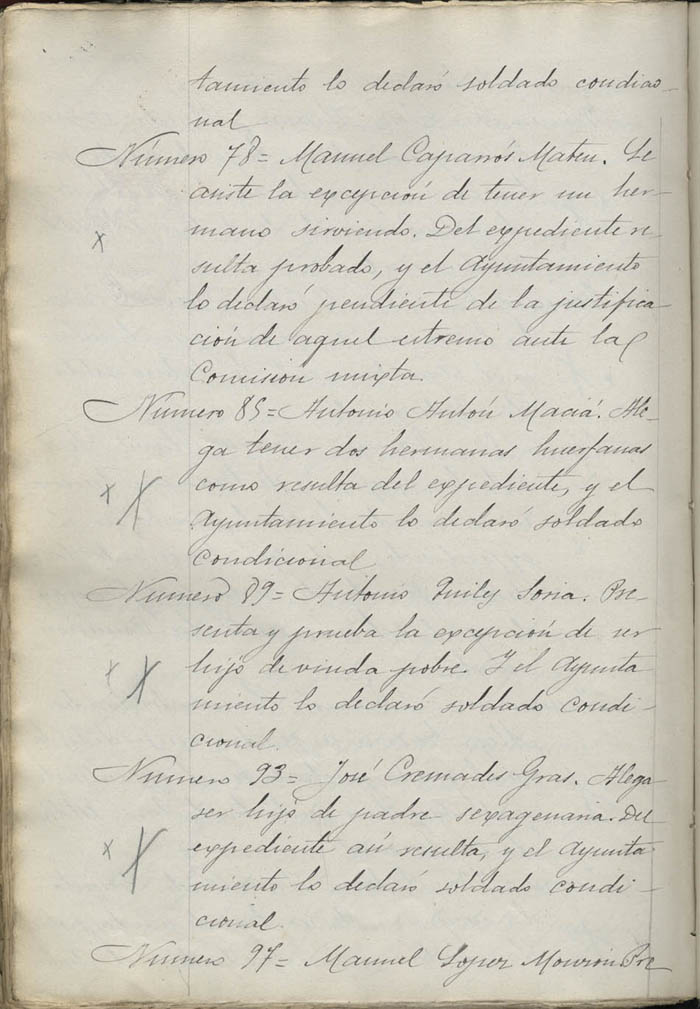 tamiento lo declaró soldado condicio-
nal
Número 78= Manuel Caparrós Mateu. Le
asiste la excepción de tener un her-
mano sirviendo. Del expediente re
x
sulta probado, y el Ayuntamiento
lo declaró pendiente de la justifica
ción de aquel extremo ante la
Comision mixta.
Número 85= Antonio Antón Maciá. Ale-
ga tener dos hermanas huerfanas
x X
como resulta del expediente, y el
Ayuntamiento lo declaró soldado
condicional
Número 89= Antonio Quiles Soria. Pre-
senta y prueba la excepción de ser
x X
hijo de viuda pobre. Y el Ayunta
miento lo declaró soldado condi-
cional.
Número 93= José Cremades Gras. Alega
ser hijo de padre sexagenaria. Del
x X
expediente así resulta, y el Ayunta-
miento lo declaró soldado condi-
cional.
Número 97= Manuel Lopez Pre